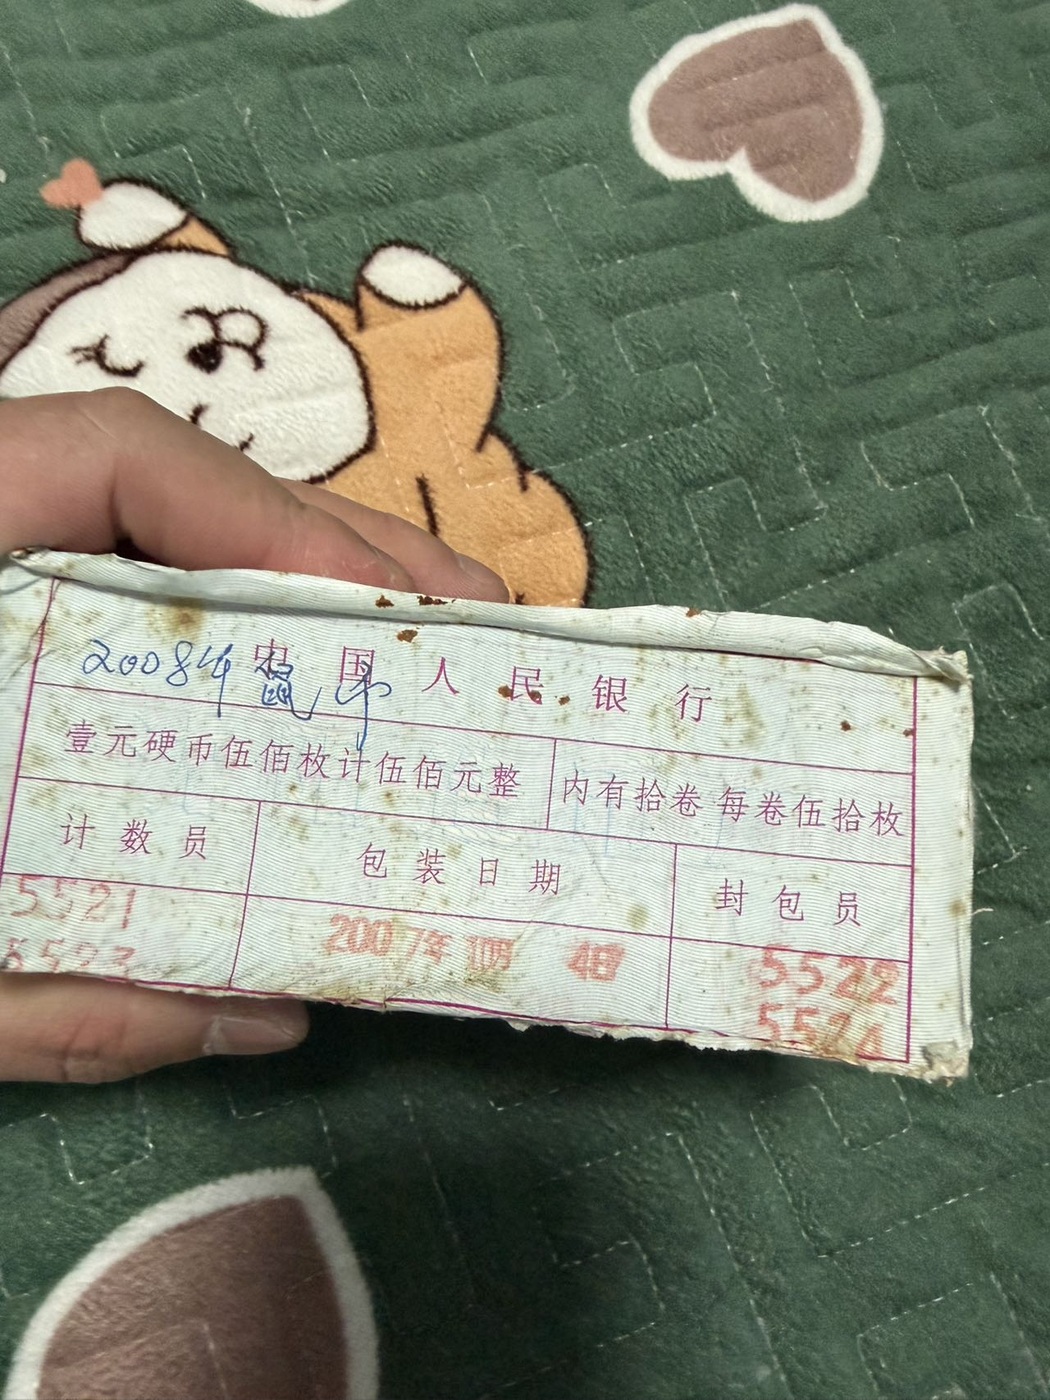 中国人民银行
2008年 鼠币
壹元硬币伍佰枚计伍佰元整
内有拾卷每卷伍拾枚
计数员
包装日期
封包员
5521
5523
2007年10月 4日
5522
5524